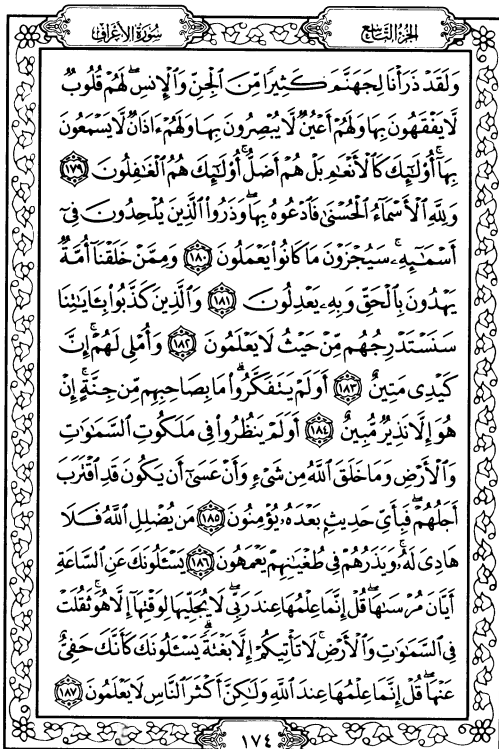 سُورَةُ الأَعۡرَافِ
الجُزءُ التَّاسِعُ
وَلَقَدۡ ذَرَأۡنَا لِجَهَنَّمَ كَثِيرٗا مِّنَ ٱلۡجِنِّ وَٱلۡإِنسِۖ لَهُمۡ قُلُوبٞ
لَّا يَفۡقَهُونَ بِهَا وَلَهُمۡ أَعۡيُنٞ لَّا يُبۡصِرُونَ بِهَا وَلَهُمۡ ءَاذَانٞ لَّا يَسۡمَعُونَ
بِهَآۚ أُوْلَٰٓئِكَ كَٱلۡأَنۡعَٰمِ بَلۡ هُمۡ أَضَلُّۚ أُوْلَٰٓئِكَ هُمُ ٱلۡغَٰفِلُونَ ١٧٩
وَلِلَّهِ ٱلۡأَسۡمَآءُ ٱلۡحُسۡنَىٰ فَٱدۡعُوهُ بِهَاۖ وَذَرُواْ ٱلَّذِينَ يُلۡحِدُونَ فِيٓ
أَسۡمَٰٓئِهِۦۚ سَيُجۡزَوۡنَ مَا كَانُواْ يَعۡمَلُونَ ١٨٠ وَمِمَّنۡ خَلَقۡنَآ أُمَّةٞ
يَهۡدُونَ بِٱلۡحَقِّ وَبِهِۦ يَعۡدِلُونَ ١٨١ وَٱلَّذِينَ كَذَّبُواْ بِـَٔايَٰتِنَا
سَنَسۡتَدۡرِجُهُم مِّنۡ حَيۡثُ لَا يَعۡلَمُونَ ١٨٢ وَأُمۡلِي لَهُمۡۚ إِنَّ
كَيۡدِي مَتِينٌ ١٨٣ أَوَلَمۡ يَتَفَكَّرُواْۗ مَا بِصَاحِبِهِم مِّن جِنَّةٍۚ إِنۡ
هُوَ إِلَّا نَذِيرٞ مُّبِينٌ ١٨٤ أَوَلَمۡ يَنظُرُواْ فِي مَلَكُوتِ ٱلسَّمَٰوَٰتِ
وَٱلۡأَرۡضِ وَمَا خَلَقَ ٱللَّهُ مِن شَيۡءٖ وَأَنۡ عَسَىٰٓ أَن يَكُونَ قَدِ ٱقۡتَرَبَ
أَجَلُهُمۡۖ فَبِأَيِّ حَدِيثِۭ بَعۡدَهُۥ يُؤۡمِنُونَ ١٨٥ مَن يُضۡلِلِ ٱللَّهُ فَلَا
هَادِيَ لَهُۥۚ وَيَذَرُهُمۡ فِي طُغۡيَٰنِهِمۡ يَعۡمَهُونَ ١٨٦ يَسۡـَٔلُونَكَ عَنِ ٱلسَّاعَةِ
أَيَّانَ مُرۡسَىٰهَاۖ قُلۡ إِنَّمَا عِلۡمُهَا عِندَ رَبِّيۖ لَا يُجَلِّيهَا لِوَقۡتِهَآ إِلَّا هُوَۚ ثَقُلَتۡ
فِي ٱلسَّمَٰوَٰتِ وَٱلۡأَرۡضِۚ لَا تَأۡتِيكُمۡ إِلَّا بَغۡتَةٗۗ يَسۡـَٔلُونَكَ كَأَنَّكَ حَفِيٌّ
عَنۡهَاۖ قُلۡ إِنَّمَا عِلۡمُهَا عِندَ ٱللَّهِ وَلَٰكِنَّ أَكۡثَرَ ٱلنَّاسِ لَا يَعۡلَمُونَ ١٨٧
١٧٤